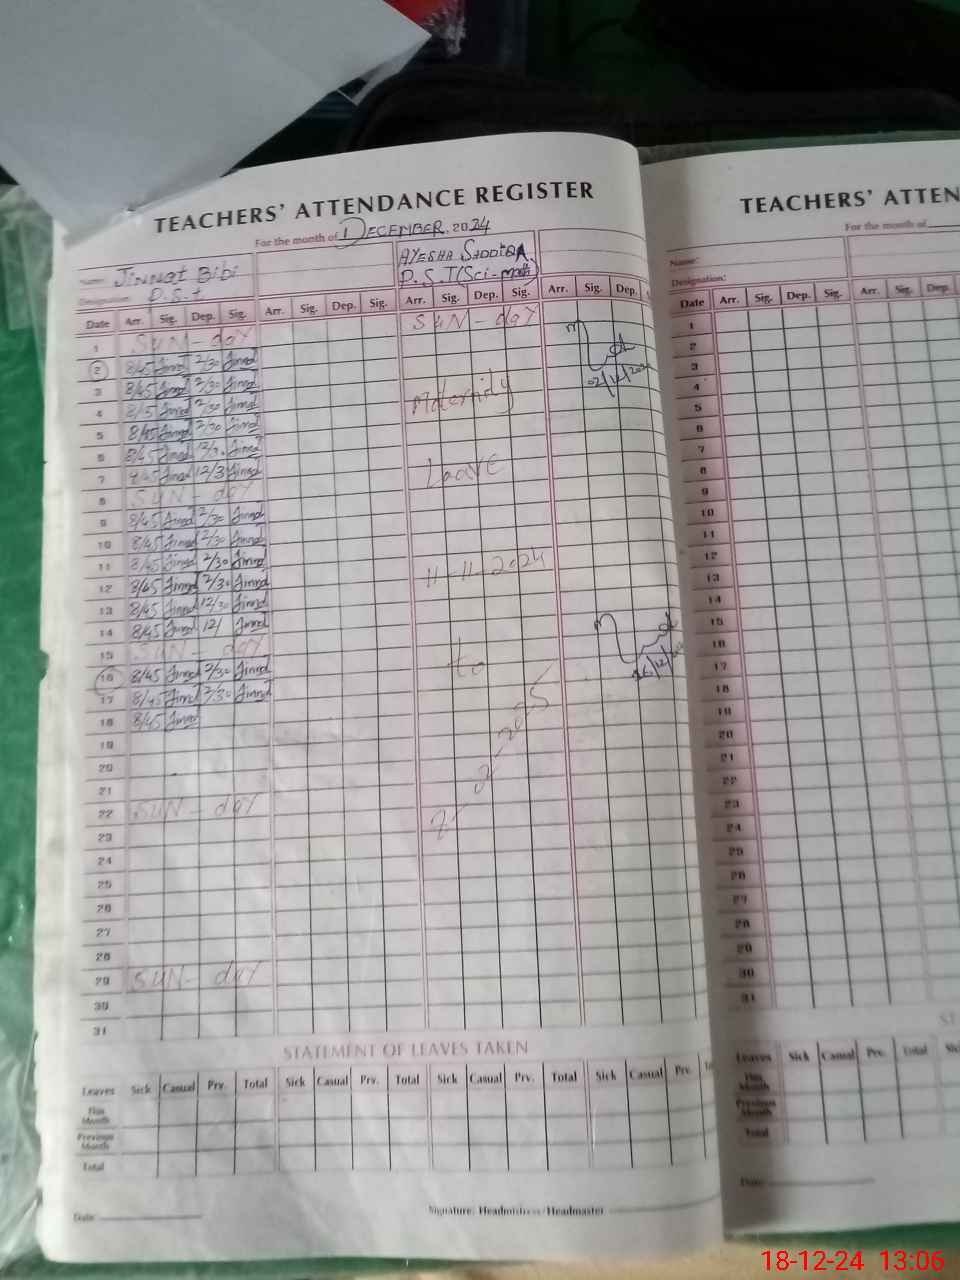 TEACHERS' ATTENDANCE REGISTER
For the month of DECEMBER, 2024
Name: Jinnat Bibi
AYESHA SADDIQA
Designation: P.S.t
P.S.T (Sci-math)
Date Arr. Sig. Dep. Sig. Arr. Sig. Dep. Sig. Arr. Sig. Dep. Sig. Arr. Sig. Dep.
1 SUN-day SUN-day
2 8/45 Jinnat 2/30 Jinnat
3 8/45 Jinnat 2/30 Jinnat
02/12/2024
4 8/45 Jinnat 2/30 Jinnat Maternity
5 8/45 Jinnat 2/30 Jinnat
6 8/45 Jinnat 12/30 Jinnat
7 8/45 Jinnat 12/30 Jinnat Leave
8 SUN-day
9 8/45 Jinnat 2/30 Jinnat
10 8/45 Jinnat 2/30 Jinnat
11 8/45 Jinnat 2/30 Jinnat
12 8/45 Jinnat 2/30 Jinnat 11-11-2024
13 8/45 Jinnat 12/30 Jinnat
14 8/45 Jinnat 12/ Jinnat
15 SUN-day
16 8/45 Jinnat 2/30 Jinnat to
17 8/45 Jinnat 2/30 Jinnat
18 8/45 Jinnat
19
20
21
22 SUN-day
8-2-2025
23
24
25
26
27
28
29 SUN-day
30
31
STATEMENT OF LEAVES TAKEN
Leaves Sick Casual Prv. Total Sick Casual Prv. Total Sick Casual Prv. Total Sick Casual Prv.
This Month
Previous Month
Total
Date:
Signature: Headmistress/Headmaster
TEACHERS' ATTEN
For the month of
Name:
Designation:
Date Arr. Sig. Dep. Sig. Arr. Sig. Dep.
1
2
3
4
5
6
7
8
9
10
11
12
13
14
15
16
17
18
19
20
21
22
23
24
25
26
27
28
29
30
31
Leaves Sick Casual Prv. Total
This Month
Previous Month
Total
Date:
18-12-24 13:06